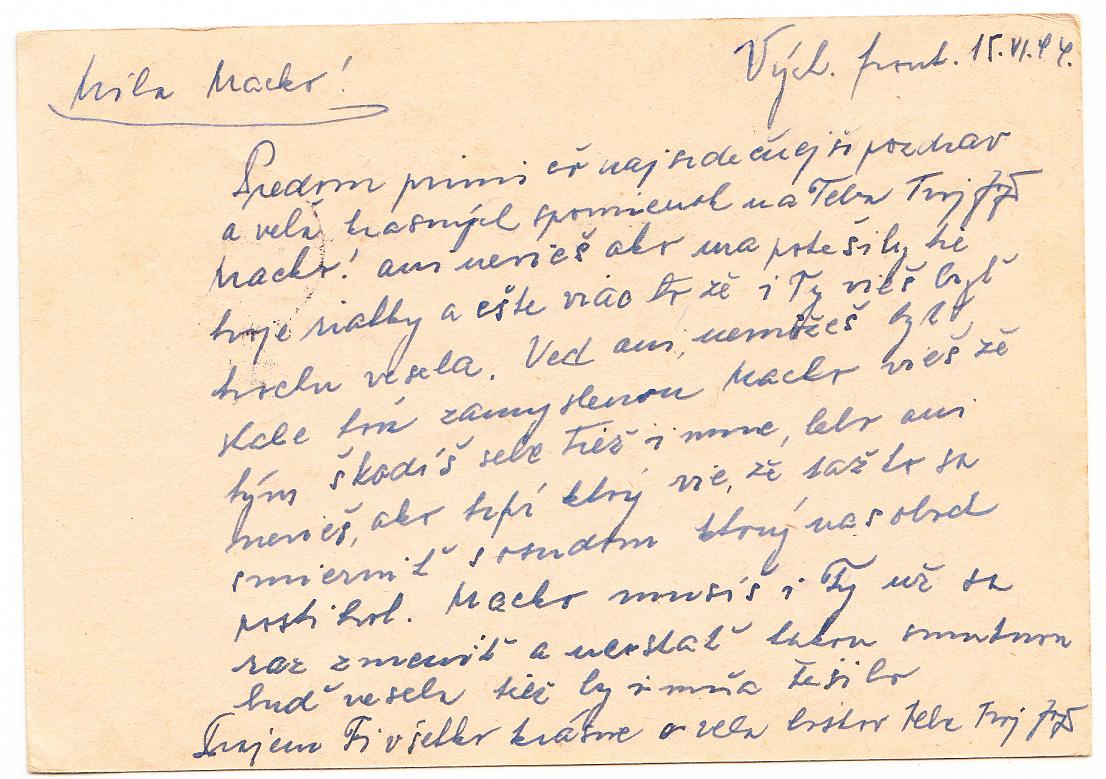 Vých. front. 15.VI.44.
Milá Macko!
Predom primi čo najsrdečnejší pozdrav
a velă krasných spomienok na Teba Tvoj
Macko! ani nevieš ako ma potešily tie
tvoje riadky a ešte viac to že i Ty vieš byť
trochu vesela. Veď ani, nemôžeš byť
stale tou zamyslenou Macko vieš že
tým škodíš sebe tiež i mne, lebo ani
nevieš, ako trpí ktorý vie, že ťažko sa
smierniť s osudom ktorý nas obod
postihol. Macko musíš i Ty už sa
raz zmeniť a neostať takou smutnou
buď vesela tiež by i mňa tešilo
Prajem Ti všetko krásne a vela bozkov Teba Tvoj